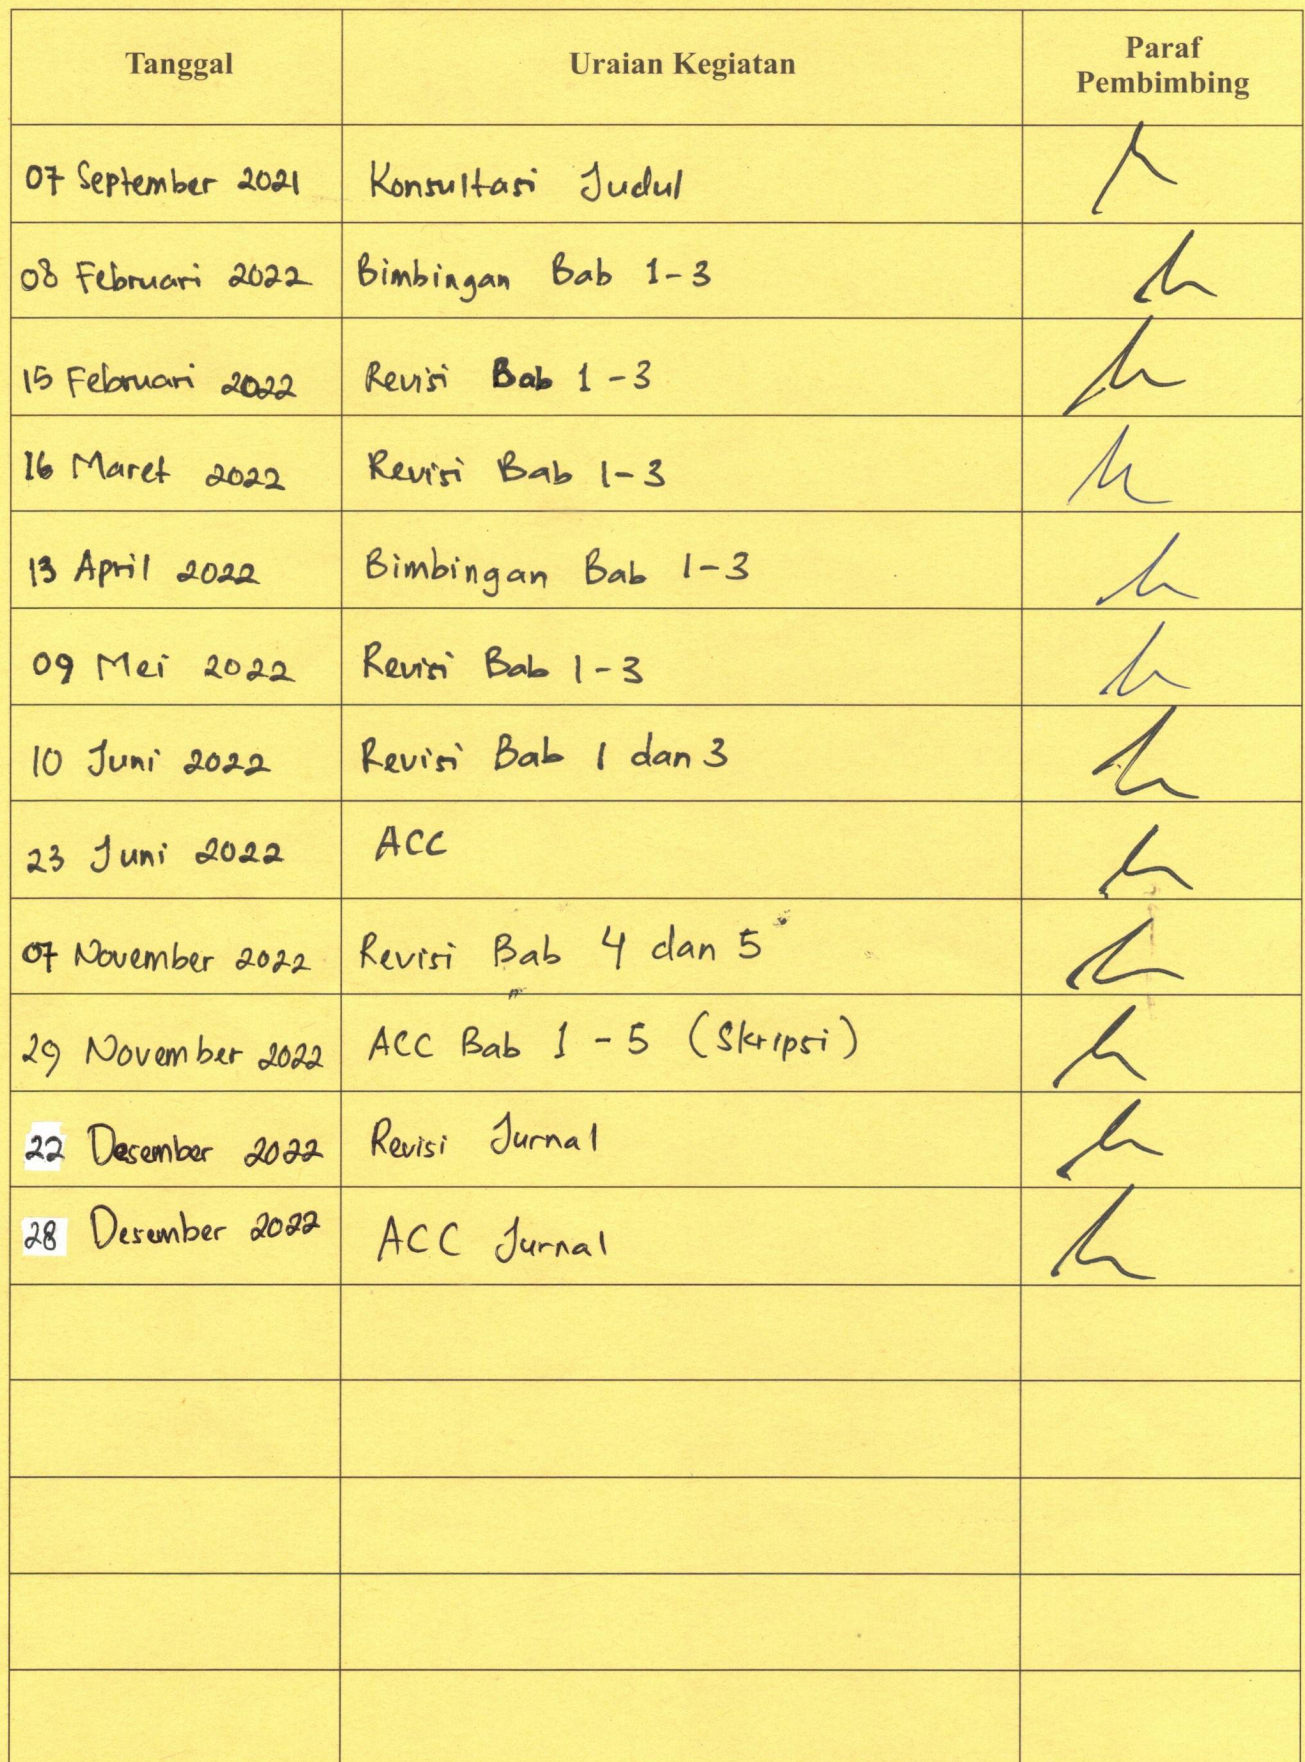 Tanggal Uraian Kegiatan Paraf
Pembimbing
07 September 2021 Konsultasi Judul
08 Februari 2022 Bimbingan Bab 1-3
15 Februari 2022 Revisi Bab 1-3
16 Maret 2022 Revisi Bab 1-3
13 April 2022 Bimbingan Bab 1-3
09 Mei 2022 Revisi Bab 1-3
10 Juni 2022 Revisi Bab 1 dan 3
23 Juni 2022 ACC
07 November 2022 Revisi Bab 4 dan 5
29 November 2022 ACC Bab 1-5 (Skripsi)
22 Desember 2022 Revisi Jurnal
28 Desember 2022 ACC Jurnal